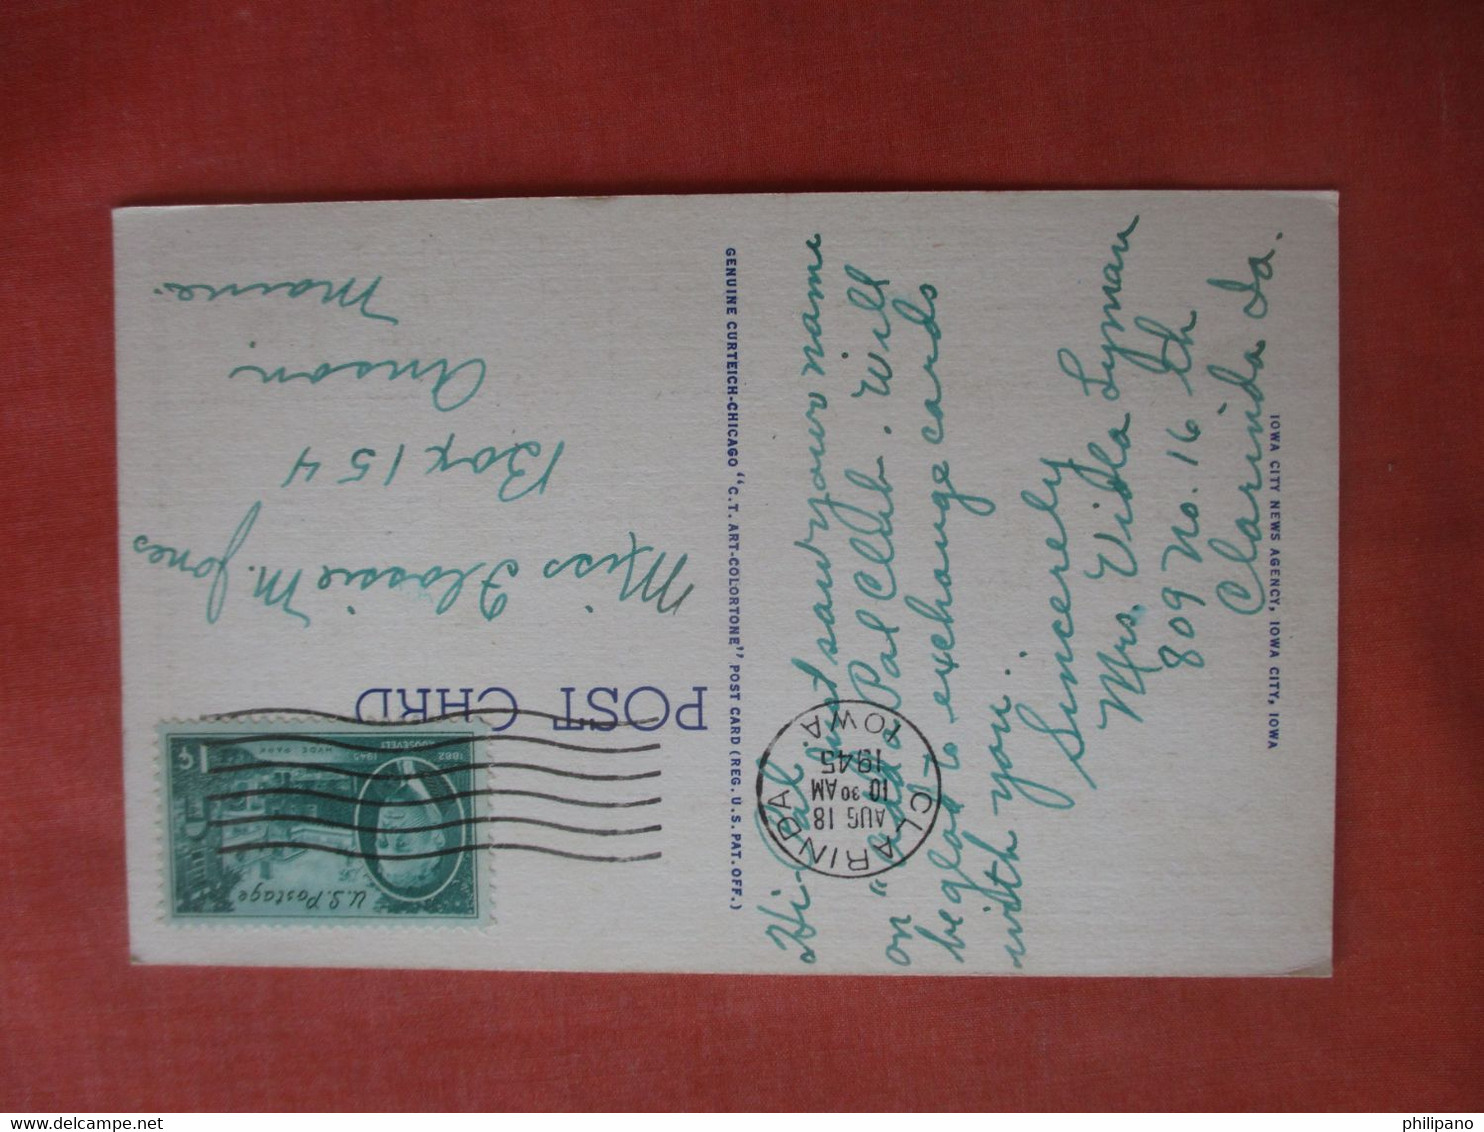 IOWA CITY NEWS AGENCY, IOWA CITY, IOWA
Hi-Pal
Just saw your name
on "Card Pal Club". Will
be glad to exchange cards
with you.
Sincerely
Mrs. Villa Lyman
809 No. 16 th
Clarinda Ia.
GENUINE CURTEICH-CHICAGO "C.T. ART-COLORTONE" POST CARD (REG. U.S. PAT. OFF.)
CLARINDA.
IOWA.
AUG 18
10 30 AM
1945
POST CARD
U.S. Postage
1882 1945
ROOSEVELT
HYDE PARK
1¢
Miss Flossie M. Jones
Box 154
Anson
Maine.
philipano